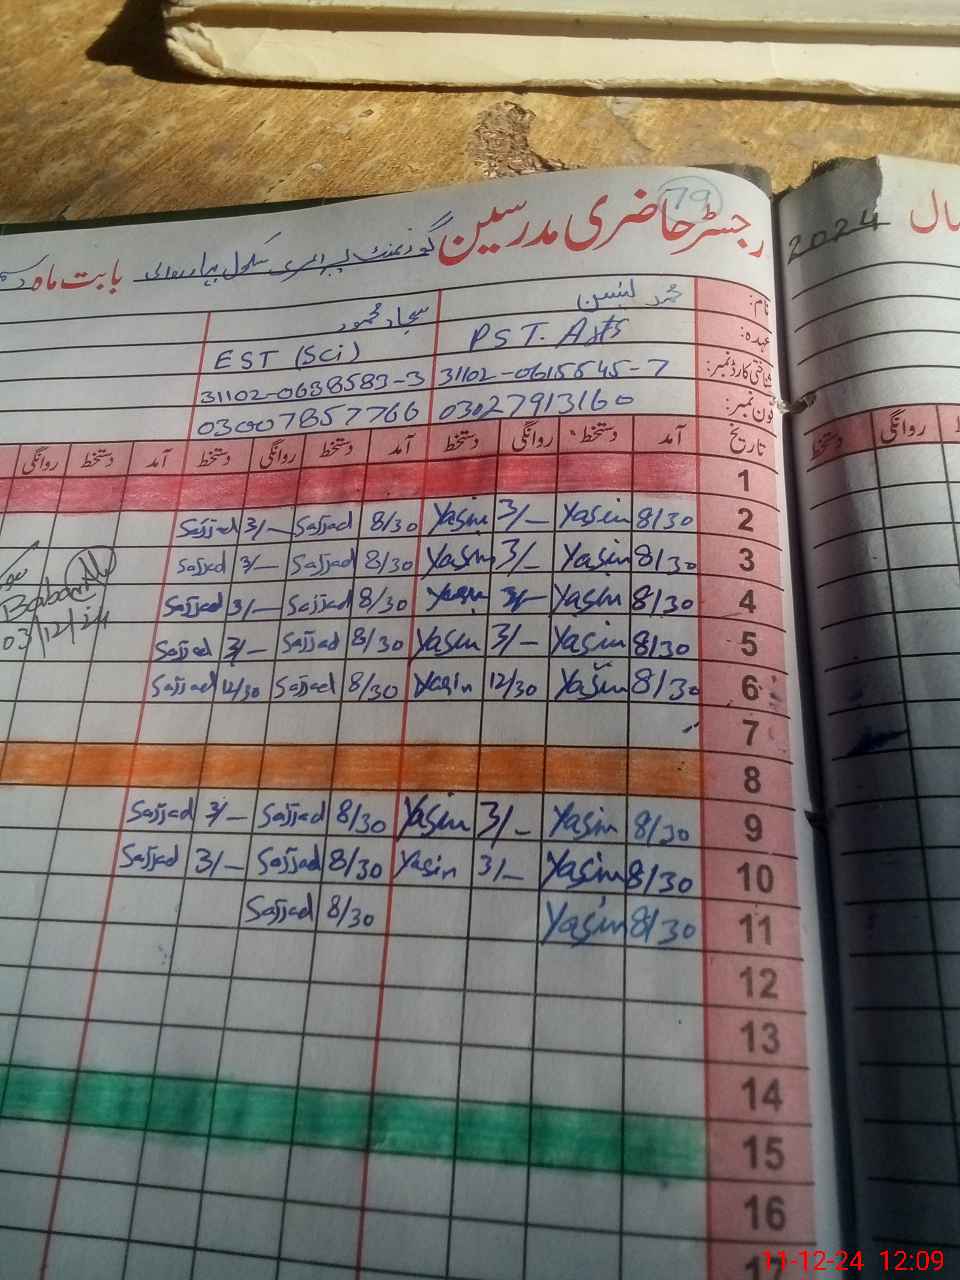 79
رجسٹر حاضری مدرسین گورنمنٹ پرائمری سکول بابت ماہ
2024 سال
نام: محمد یٰسین سجاد محمود
عہدہ: PST. Arts EST (Sci)
شناختی کارڈ نمبر: 31102-0615545-7 31102-0638583-3
فون نمبر: 03027913160 03007857766
تاریخ آمد دستخط روانگی دستخط آمد دستخط روانگی دستخط آمد دستخط روانگی
دستخط روانگی
1
2 8/30 Yasin 3/- Yasin 8/30 Sajjad 3/- Sajjad
3 8/30 Yasin 3/- Yasin 8/30 Sajjad 3/- Sajjad
4 8/30 Yasin 3/- Yasin 8/30 Sajjad 3/- Sajjad
5 8/30 Yasin 3/- Yasin 8/30 Sajjad 3/- Sajjad
03/12/24
6 8/30 Yasin 12/30 Yasin 8/30 Sajjad 12/30 Sajjad
7
8
9 8/30 Yasin 3/- Yasin 8/30 Sajjad 3/- Sajjad
10 8/30 Yasin 3/- Yasin 8/30 Sajjad 3/- Sajjad
11 8/30 Yasin 8/30 Sajjad
12
13
14
15
16
11-12-24 12:09